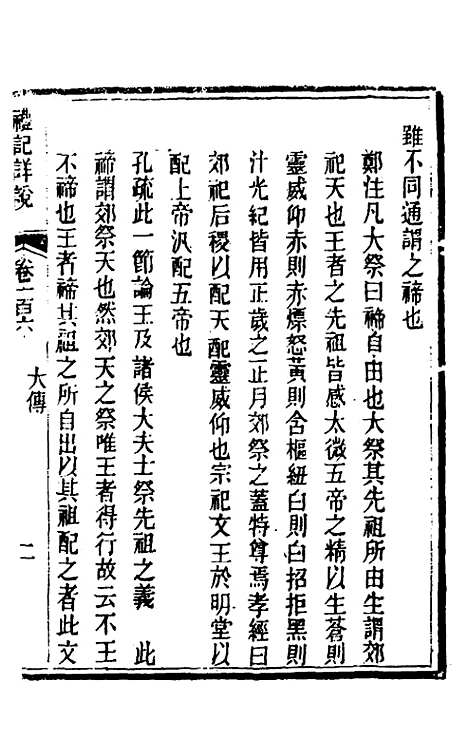 雖不同通謂之禘也
鄭注凡大祭曰禘自由也大祭其先祖所由生謂郊
祀天也王者之先祖皆感太微五帝之精以生蒼則
靈威仰赤則赤熛怒黃則含樞紐白則白招拒黑則
汁光紀皆用正歲之正月郊祭之蓋特尊焉孝經曰
郊祀后稷以配天配靈威仰也宗祀文王於明堂以
配上帝汎配五帝也
孔疏此一節論王及諸侯大夫士祭先祖之義 此
禘謂郊祭天也然郊天之祭唯王者得行故云不王
不禘也王者禘其祖之所自出以其祖配之者此文
禮記詳說 卷一百六 大傳 二